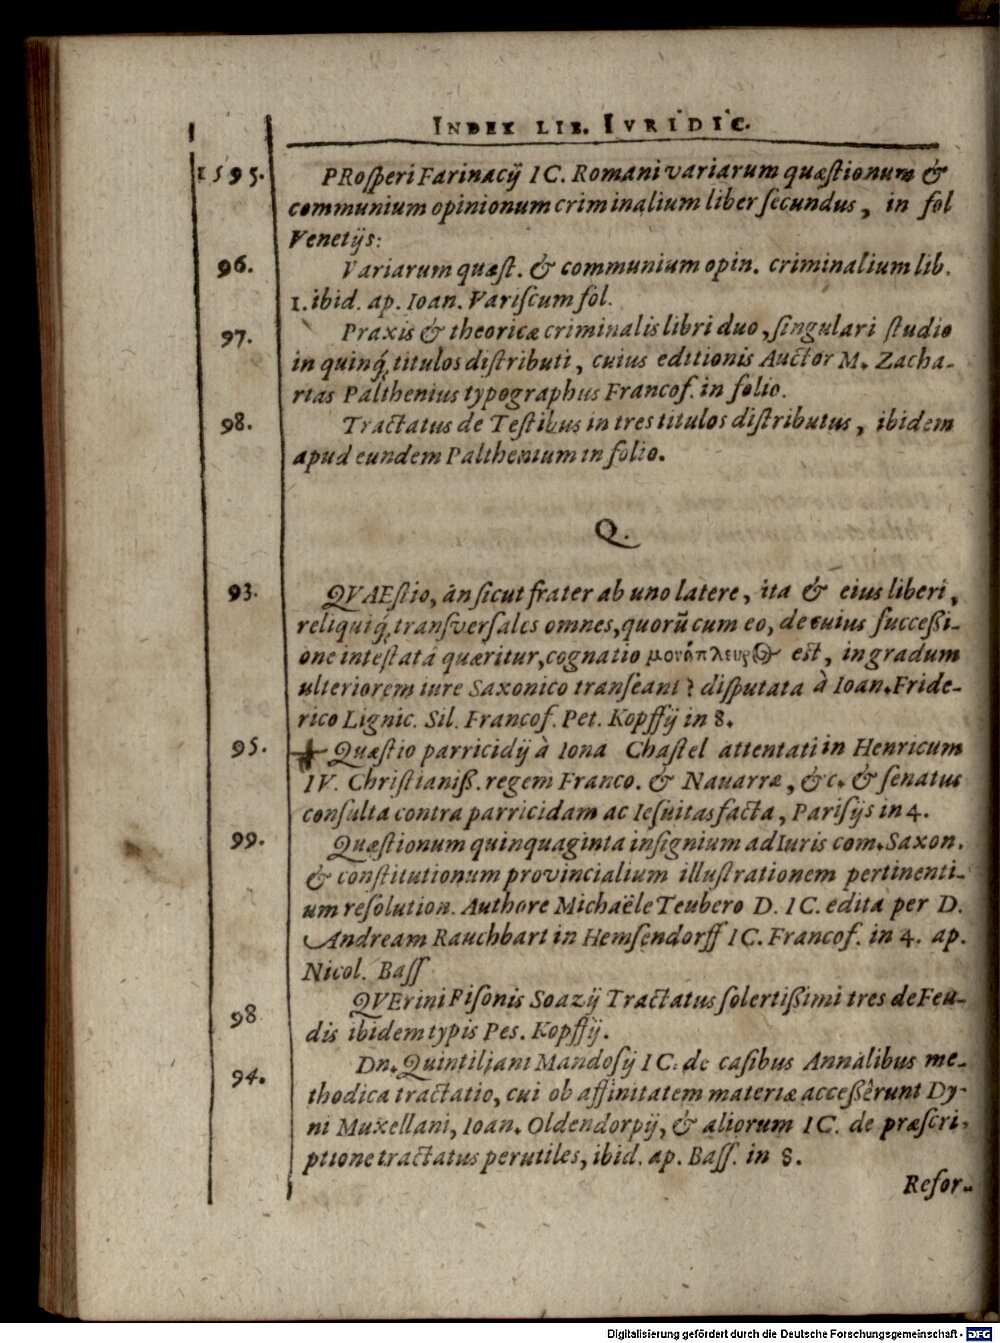 INDEX LIB. IVRIDIC.
1595. PRoſperi Farinacij IC. Romani variarum quæſtionum &
communium opinionum criminalium liber ſecundus, in fol
Venetijs:
96. Variarum quæſt. & communium opin. criminalium lib.
1. ibid. ap. Ioan. Variſcum fol.
97. Praxis & theoricæ criminalis libri duo, ſingulari ſtudio
in quinq́; titulos diſtributi, cuius editionis Auctor M. Zacha-
rias Palthenius typographus Francof. in folio.
98. Tractatus de Teſtibus in tres titulos diſtributus, ibidem
apud eundem Palthenium in folio.
Q.
93. QVAEſtio, an ſicut frater ab uno latere, ita & eius liberi,
reliquiq́; tranſverſales omnes, quorũ cum eo, de cuius ſucceßi-
one inteſtata quæritur, cognatio μονόπλευρος est, in gradum
ulteriorem iure Saxonico tranſeant? diſputata à Ioan. Fride-
rico Lignic. Sil. Francof. Pet. Kopffij in 8.
95. Quæſtio parricidij à Iona Chaſtel attentati in Henricum
IV. Chriſtianiß. regem Franco. & Nauarræ, &c. & ſenatus
conſulta contra parricidam ac Ieſuitas facta, Pariſijs in 4.
99. Quæſtionum quinquaginta inſignium ad Iuris com. Saxon.
& conſtitutionum provincialium illuſtrationem pertinenti-
um reſolution. Authore Michaële Teubero D. IC. edita per D.
Andream Rauchbart in Hemſendorff IC. Francof. in 4. ap.
Nicol. Baſſ
98 QVErini Piſonis Soazij Tractatus ſolertißimi tres de Feu-
dis ibidem typis Pes. Kopffij.
94. Dn. Quintiliani Mandoſij IC. de caſibus Annalibus me-
thodica tractatio, cui ob affinitatem materiæ acceßêrunt Dy-
ni Muxellani, Ioan. Oldendorpij, & aliorum IC. de præſcri-
ptione tractatus perutiles, ibid. ap. Baſſ. in 8.
Refor-
Digitalisierung gefördert durch die Deutsche Forschungsgemeinschaft - DFG